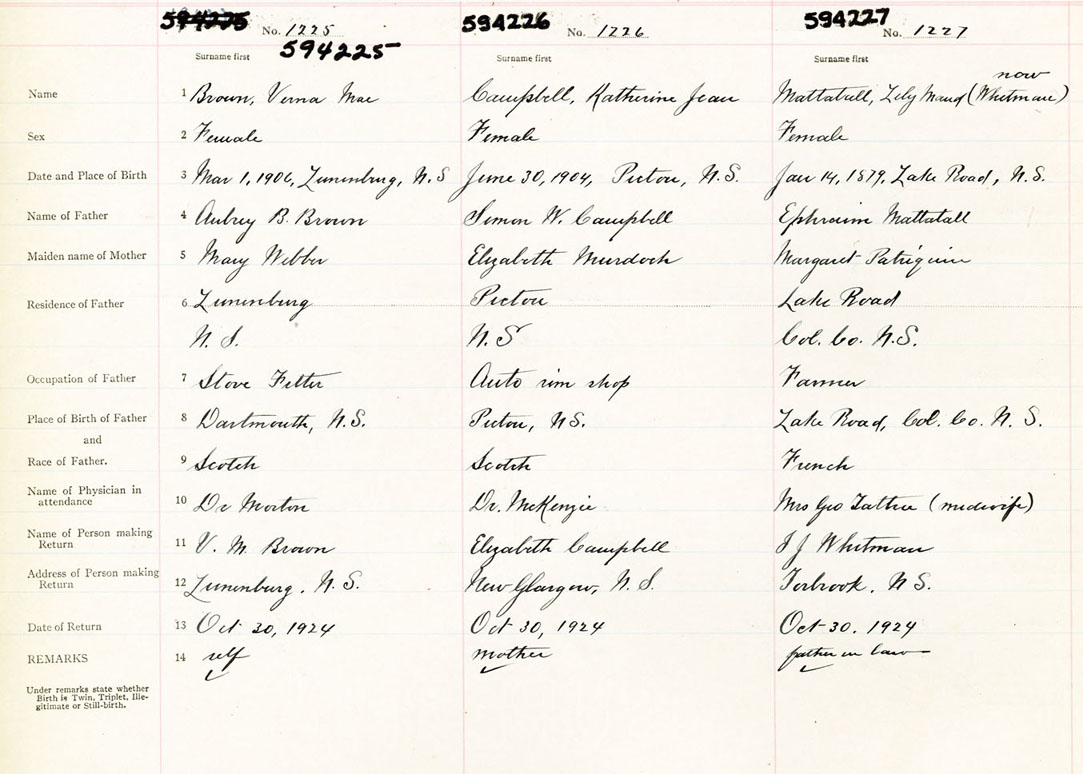 594225 594226 594227
No. 1225 No. 1226 No. 1227
594225
Surname first Surname first Surname first
now
Name 1 Brown, Verna Mae Campbell, Katherine Jean Mattatall, Lily Maud (Whitman)
Sex 2 Female Female Female
Date and Place of Birth 3 Mar 1, 1906, Lunenburg, N.S June 30, 1904, Pictou, N.S. Jan 14, 1879, Lake Road, N.S.
Name of Father 4 Aubrey B. Brown Simon W. Campbell Ephraim Mattatall
Maiden name of Mother 5 Mary Webber Elizabeth Murdock Margaret Patriquin
Residence of Father 6 Lunenburg Pictou Lake Road
N. S. N. S Col. Co. N.S.
Occupation of Father 7 Stove Fitter Auto rim shop Farmer
Place of Birth of Father 8 Dartmouth, N.S. Pictou, NS. Lake Road, Col. Co. N. S.
and
Race of Father. 9 Scotch Scotch French
Name of Physician in
attendance 10 Dr Morton Dr. McKenzie Mrs Geo (midwife)
Name of Person making
Return 11 V. M. Brown Elizabeth Campbell J J Whitman
Address of Person making
Return 12 Lunenburg, N.S. New Glasgow, N. S. Torbrook, N S.
Date of Return 13 Oct 30, 1924 Oct 30, 1924 Oct 30. 1924
REMARKS 14 self mother father in law
Under remarks state whether
Birth is Twin, Triplet, Ille-
gitimate or Still-birth.